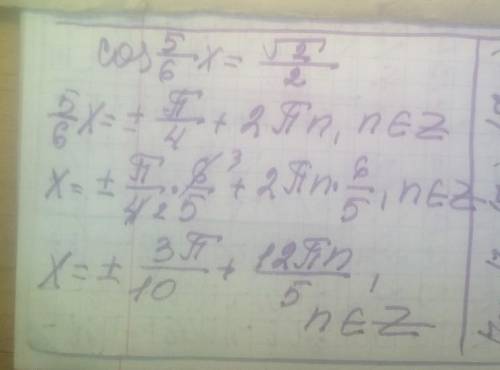 cos 5/6 x = √2/2
5/6 x = ± π/4 + 2πn, n∈Z
x = ± π/4 2 · 6/5 3 + 2πn · 6/5, n∈Z
x = ± 3π/10 + 12πn/5,
n∈Z